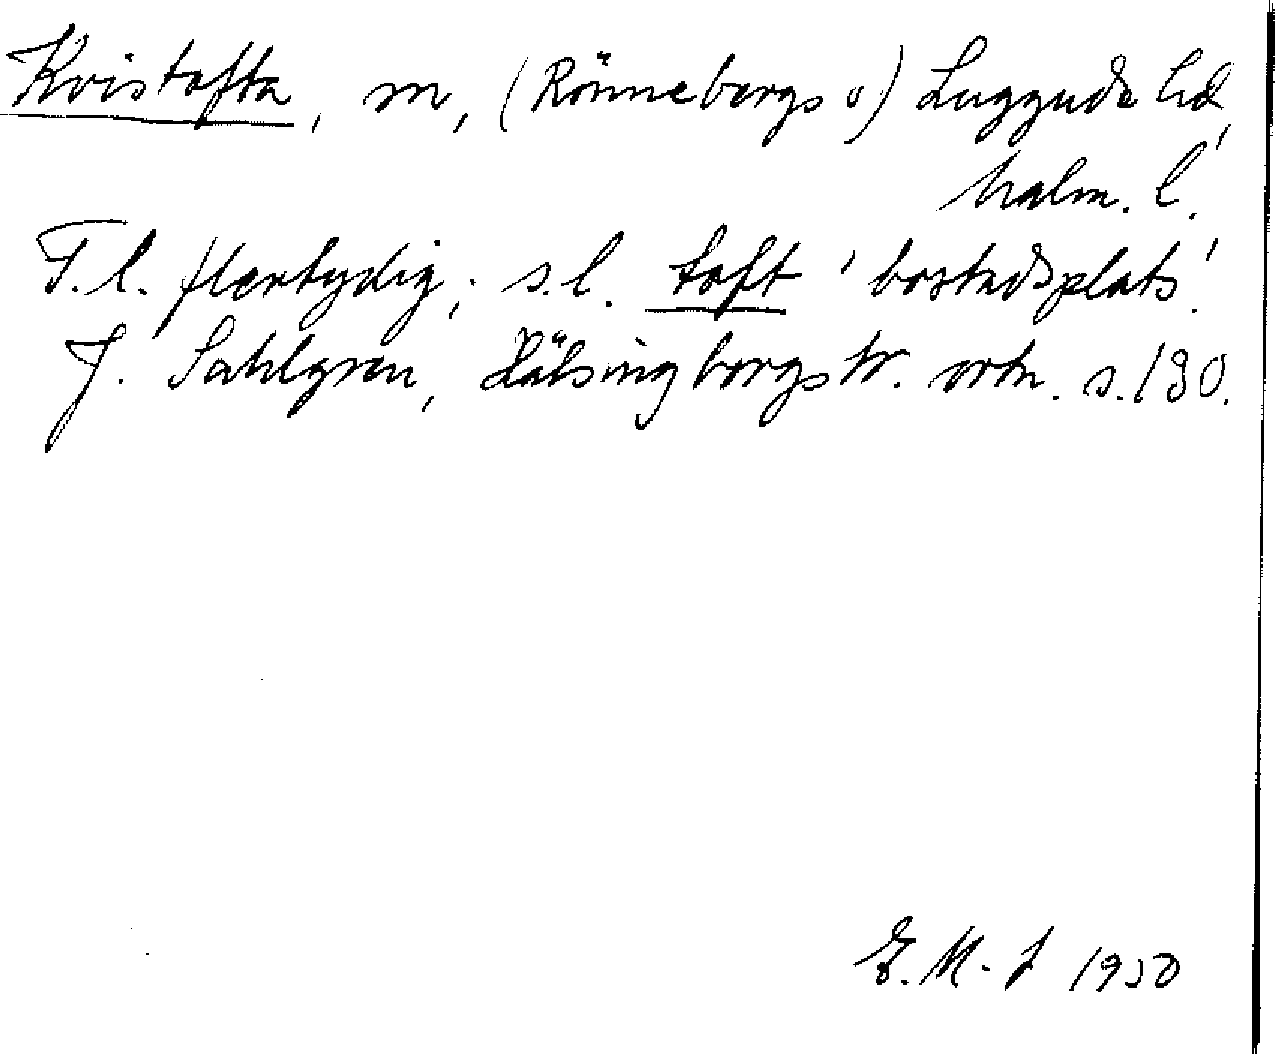 Kvistofta, m, (Rönnebergs o) Luggude hd,
malm. l.
F.l. flertydig; s.l. toft 'bostadsplats'.
J. Sahlgren, Hälsingborgstr. ortn. s. 130.
E. M. J 1950